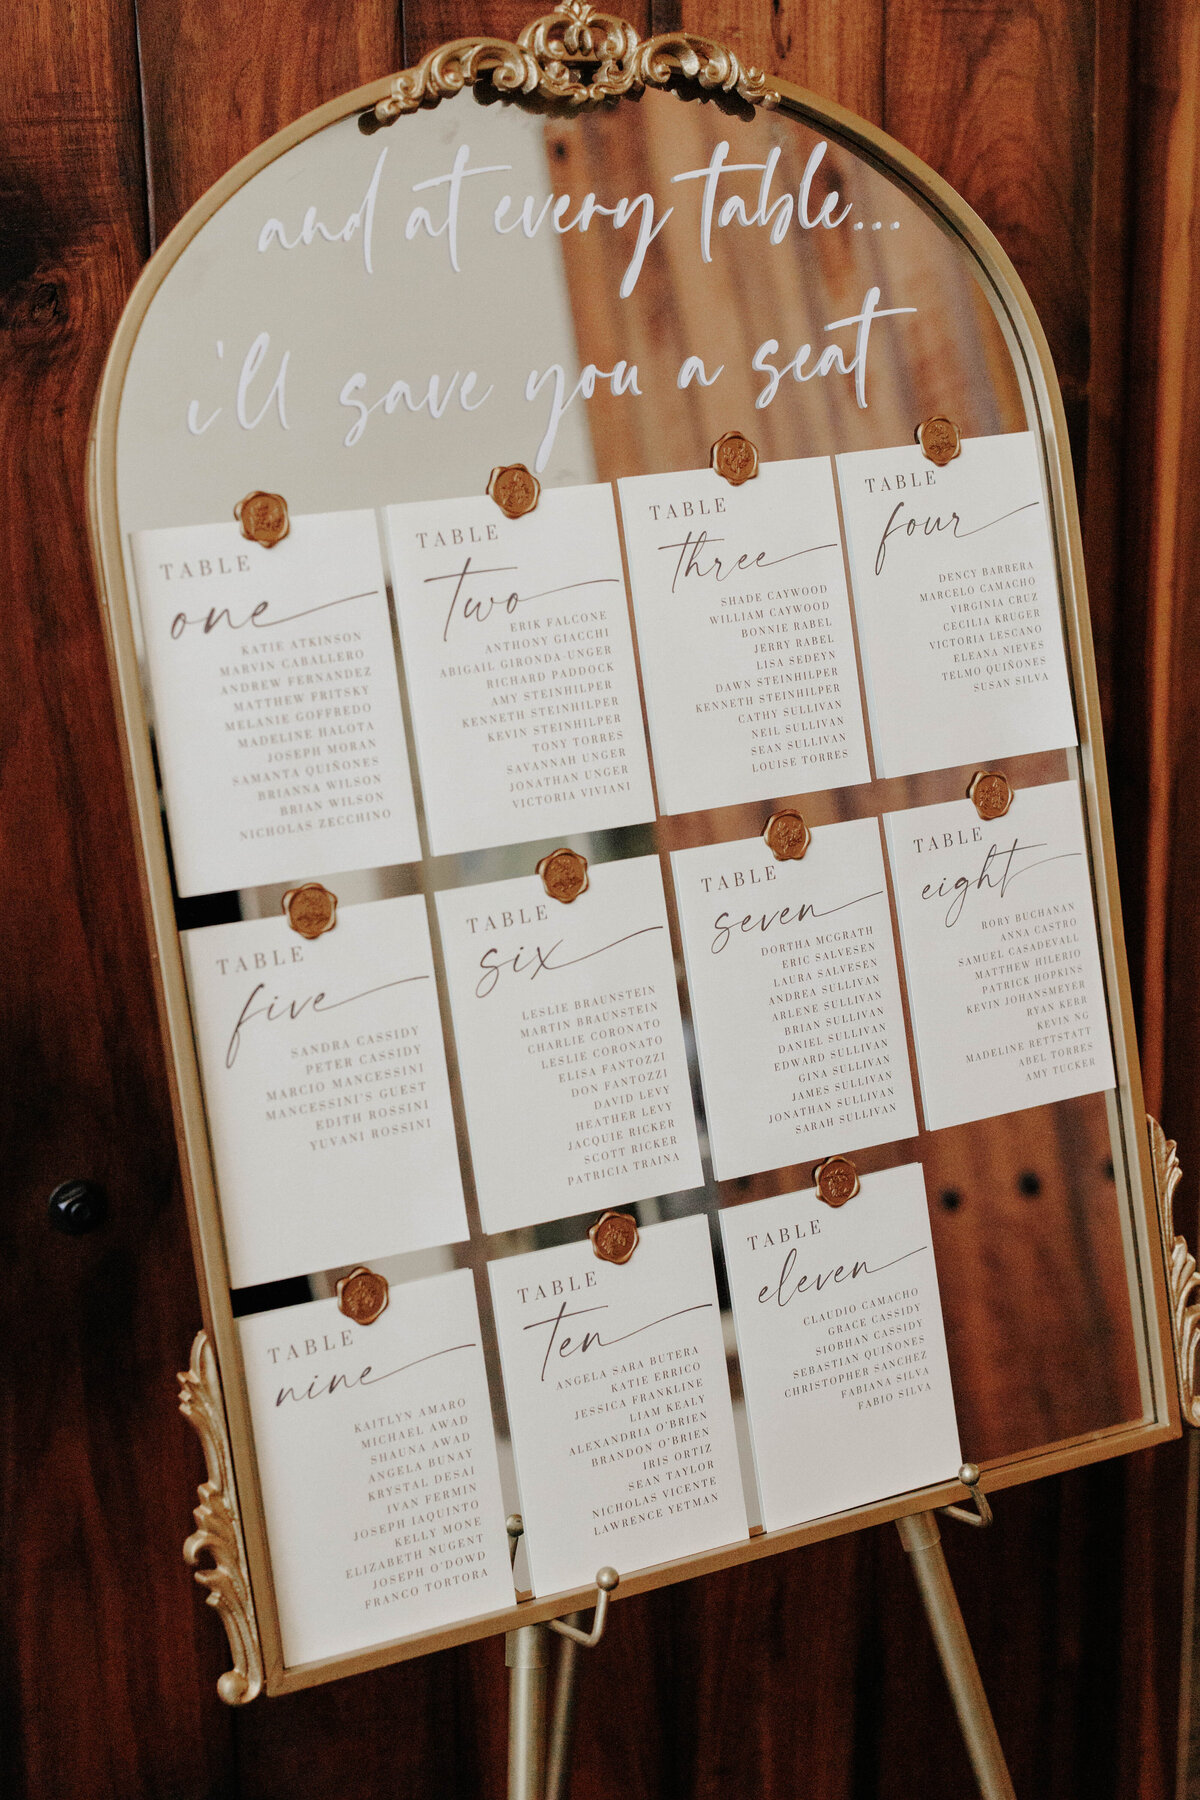 and at every table...
i'll save you a seat
TABLE
one
KATIE ATKINSON
MARVIN CABALLERO
ANDREW FERNANDEZ
MATTHEW FRITSKY
MELANIE GOFFREDO
MADELINE HALOTA
JOSEPH MORAN
SAMANTA QUIÑONES
BRIANNA WILSON
BRIAN WILSON
NICHOLAS ZECCHINO
TABLE
two
ERIK FALCONE
ANTHONY GIACCHI
ABIGAIL GIRONDA-UNGER
RICHARD PADDOCK
AMY STEINHILPER
KENNETH STEINHILPER
KEVIN STEINHILPER
TONY TORRES
SAVANNAH UNGER
JONATHAN UNGER
VICTORIA VIVIANI
TABLE
three
SHADE CAYWOOD
WILLIAM CAYWOOD
BONNIE RABEL
JERRY RABEL
LISA SEDEYN
DAWN STEINHILPER
KENNETH STEINHILPER
CATHY SULLIVAN
NEIL SULLIVAN
SEAN SULLIVAN
LOUISE TORRES
TABLE
four
DENCY BARRERA
MARCELO CAMACHO
VIRGINIA CRUZ
CECILIA KRUGER
VICTORIA LESCANO
ELEANA NIEVES
TELMO QUIÑONES
SUSAN SILVA
TABLE
five
SANDRA CASSIDY
PETER CASSIDY
MARCIO MANCESSINI
MANCESSINI'S GUEST
EDITH ROSSINI
YUVANI ROSSINI
TABLE
six
LESLIE BRAUNSTEIN
MARTIN BRAUNSTEIN
CHARLIE CORONATO
LESLIE CORONATO
ELISA FANTOZZI
DON FANTOZZI
DAVID LEVY
HEATHER LEVY
JACQUIE RICKER
SCOTT RICKER
PATRICIA TRAINA
TABLE
seven
DORTHA MCGRATH
ERIC SALVESEN
LAURA SALVESEN
ANDREA SULLIVAN
ARLENE SULLIVAN
BRIAN SULLIVAN
DANIEL SULLIVAN
EDWARD SULLIVAN
GINA SULLIVAN
JAMES SULLIVAN
JONATHAN SULLIVAN
SARAH SULLIVAN
TABLE
eight
RORY BUCHANAN
ANNA CASTRO
SAMUEL CASADEVALL
MATTHEW HILERIO
PATRICK HOPKINS
KEVIN JOHANSMEYER
RYAN KERR
KEVIN NG
MADELINE RETTSTATT
ABEL TORRES
AMY TUCKER
TABLE
nine
KAITLYN AMARO
MICHAEL AWAD
SHAUNA AWAD
ANGELA BUNAY
KRYSTAL DESAI
IVAN FERMIN
JOSEPH IAQUINTO
KELLY MONE
ELIZABETH NUGENT
JOSEPH O'DOWD
FRANCO TORTORA
TABLE
ten
ANGELA SARA BUTERA
KATIE ERRICO
JESSICA FRANKLINE
LIAM KEALY
ALEXANDRIA O'BRIEN
BRANDON O'BRIEN
IRIS ORTIZ
SEAN TAYLOR
NICHOLAS VICENTE
LAWRENCE YETMAN
TABLE
eleven
CLAUDIO CAMACHO
GRACE CASSIDY
SIOBHAN CASSIDY
SEBASTIAN QUIÑONES
CHRISTOPHER SANCHEZ
FABIANA SILVA
FABIO SILVA